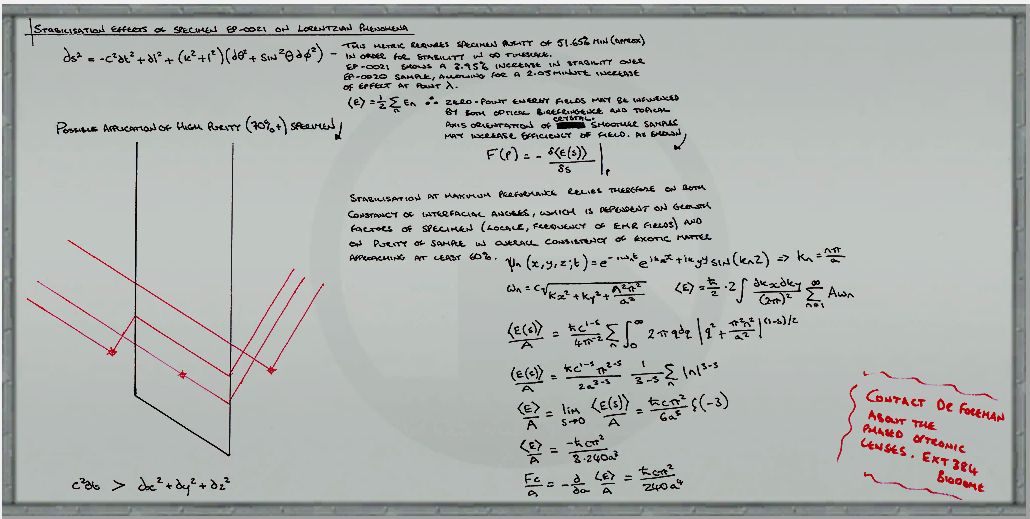 STABILISATION EFFECTS OF SPECIMEN EP-0021 ON LORENTZIAN PHENOMENA
ds² = -c²dt² + dl² + (k²+l²)(dθ² + sin²θ dφ²) - THIS METRIC REQUIRES SPECIMEN PURITY OF 51.65% MIN (APPROX)
IN ORDER FOR STABILITY IN ∞ TIMESCALE.
EP-0021 SHOWS A 3.95% INCREASE IN STABILITY OVER
EP-0020 SAMPLE, ALLOWING FOR A 2.05 MINUTE INCREASE
OF EFFECT AT POINT λ.
⟨E⟩ = ½ Σn En ∴ ZERO-POINT ENERGY FIELDS MAY BE INFLUENCED
BY BOTH OPTICAL BIREFRINGENCE AND TOPICAL
AXIS ORIENTATION OF CRYSTAL. SMOOTHER SAMPLES
MAY INCREASE EFFICIENCY OF FIELD. AS SHOWN
F(p) = - δ⟨E(s)⟩/δs |p
POSSIBLE APPLICATION OF HIGH PURITY (70%+) SPECIMEN
STABILISATION AT MAXIMUM PERFORMANCE RELIES THEREFORE ON BOTH
CONSTANCY OF INTERFACIAL ANGLES, WHICH IS DEPENDENT ON GROWTH
FACTORS OF SPECIMEN (LOCALE, FREQUENCY OF EMR FIELDS) AND
ON PURITY OF SAMPLE IN OVERALL CONSISTENCY OF EXOTIC MATTER
APPROACHING AT LEAST 60%.
ψn (x,y,z;t) = e^-iωnt e^ikxx+ikyy SIN(knz) ⇒ kn = nπ/a
ωn = c√(kx² + ky² + n²π²/a²) ⟨E⟩ = ħ/2 · 2∫ dkxdky/(2π)² Σn=1^∞ Aωn
⟨E(s)⟩/A = ħc^1-s/4π² Σn ∫0^∞ 2πqdq |q² + π²n²/a²|^(1-s)/2
⟨E(s)⟩/A = ħc^1-s π^2-s/2a^3-s 1/3-s Σn |n|^3-s
⟨E⟩/A = lim s→0 ⟨E(s)⟩/A = ħcπ²/6a³ ζ(-3)
⟨E⟩/A = -ħcπ²/3·240a³
Fc/A = -d/da ⟨E⟩/A = ħcπ²/240a⁴
c²dt > dx² + dy² + dz²
CONTACT DR FOREMAN
ABOUT THE
PHASED OPTRONIC
LENSES. EXT 384
BIODOME